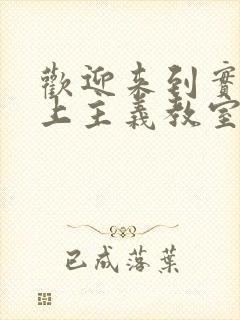 歡迎来到實
上主義教室
已成落葉